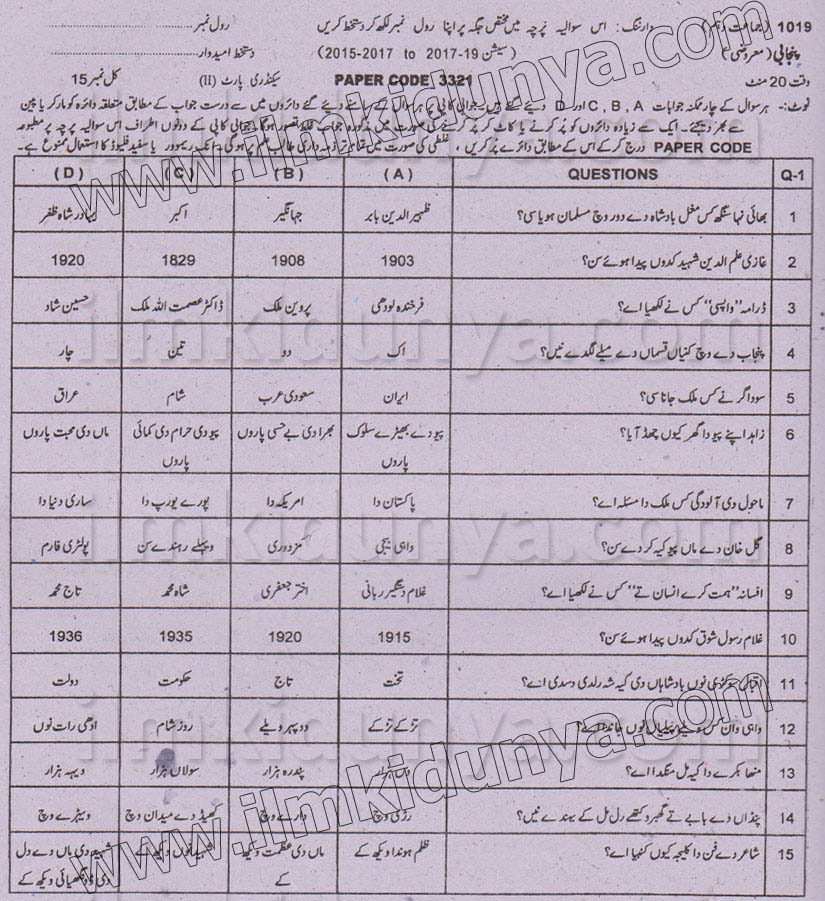 1019 (جماعت دہم) وارننگ: اس سوالیہ پرچہ میں مختص جگہ پر اپنا رول نمبر لکھ کر دستخط کریں رول نمبر
پنجابی (معروضی) (سیشن 2015-2017 to 2017-19) دستخط امیدوار
وقت 20 منٹ PAPER CODE 3321 سیکنڈری پارٹ (II) کل نمبر 15
نوٹ:- ہر سوال کے چار ممکنہ جوابات C, B, A اور D دیئے گئے ہیں۔ جوابی کاپی پر ہر سوال کے سامنے دیئے گئے دائروں میں سے درست جواب کے مطابق متعلقہ دائرہ کو مارکر یا پین
سے بھر دیجئے۔ ایک سے زیادہ دائروں کو پُر کرنے یا کاٹ کر پُر کرنے کی صورت میں مذکورہ جواب غلط تصور ہوگا۔ جوابی کاپی کے دونوں اطراف اس سوالیہ پرچہ پر مطبوعہ
PAPER CODE درج کر کے اس کے مطابق دائرے پُر کریں، غلطی کی صورت میں تمام تر ذمہ داری طالب علم پر ہوگی۔ انک ریمور یا سفید فلیوڈ کا استعمال ممنوع ہے۔
Q-1 QUESTIONS (A) (B) (C) (D)
1 بھائی نہا سنگھ کس مغل بادشاہ دے دور وچ مسلمان ہویا سی؟ ظہیر الدین بابر جہانگیر اکبر بہادر شاہ ظفر
2 غازی علم الدین شہید کدوں پیدا ہوئے سن؟ 1903 1908 1829 1920
3 ڈرامہ "واپسی" کس نے لکھیا اے؟ فرخندہ لودھی پروین ملک ڈاکٹر عصمت اللہ ملک حسین شاد
4 پنجاب دے وچ کنیاں قسماں دے میلے لگدے نیں؟ اک دو تین چار
5 سوداگر نے کس ملک جانا سی؟ ایران سعودی عرب شام عراق
6 زاہد اپنے پیو دا گھر کیوں چھڈ آیا؟ پیو دے بھیڑے سلوک پاروں بھرا دی بے حسی پاروں پیو دی حرام دی کمائی پاروں ماں دی محبت پاروں
7 ماحول دی آلودگی کس ملک دا مسئلہ اے؟ پاکستان دا امریکہ دا پورے یورپ دا ساری دنیا دا
8 گل خان دے ماں پیو کیہ کردے سن؟ واہی بیجی مزدوری ویہلے رہندے سن پولٹری فارم
9 افسانہ "ہمت کرے انسان تے" کس نے لکھیا اے؟ غلام دستگیر ربانی اختر جعفری شاہ محمد تاج محمد
10 غلام رسول شوق کدوں پیدا ہوئے سن؟ 1915 1920 1935 1936
11 اقبال نوں بادشاہاں دی کیہ شہ رلدی دسدی اے؟ تخت تاج حکومت دولت
12 واہی وان کس ویلے پیلیاں نوں جاندا اے؟ تڑکے تڑکے دوپہر ویلے روز شام ادھی رات نوں
13 منڈا بکرے دا کیہ مل منگدا اے؟ دس ہزار پندرہ ہزار سولاں ہزار ویہہ ہزار
14 پنڈاں دے بابے تے گبھرو کتھے رل مل کے بہندے نیں؟ رڑی وچ دارے وچ کھیڈ دے میدان وچ ویہڑے وچ
15 شاعر دے فن دا کلیجہ کیوں کنبیا اے؟ ظلم ہوندا ویکھ کے ماں دی عظمت ویکھ کے شہید نوں ویکھ کے شہید دی ماں دے دل دی ویکھ کے
www.ilmkidunya.com
www.ilmkidunya.com
ilmkidunya.com
ilmkidunya.com
ilmkidunya.com
ilmkidunya.com